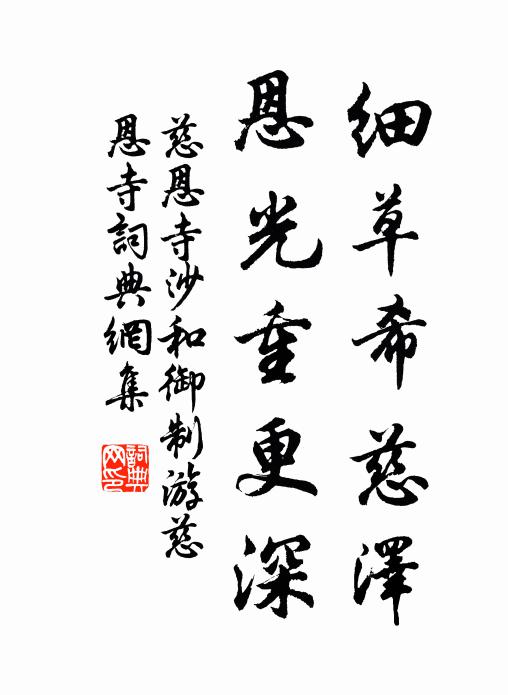 细草希慈澤
恩光重更深
慈恩寺沙和御制游慈
恩寺詞典網集
詞典
网印